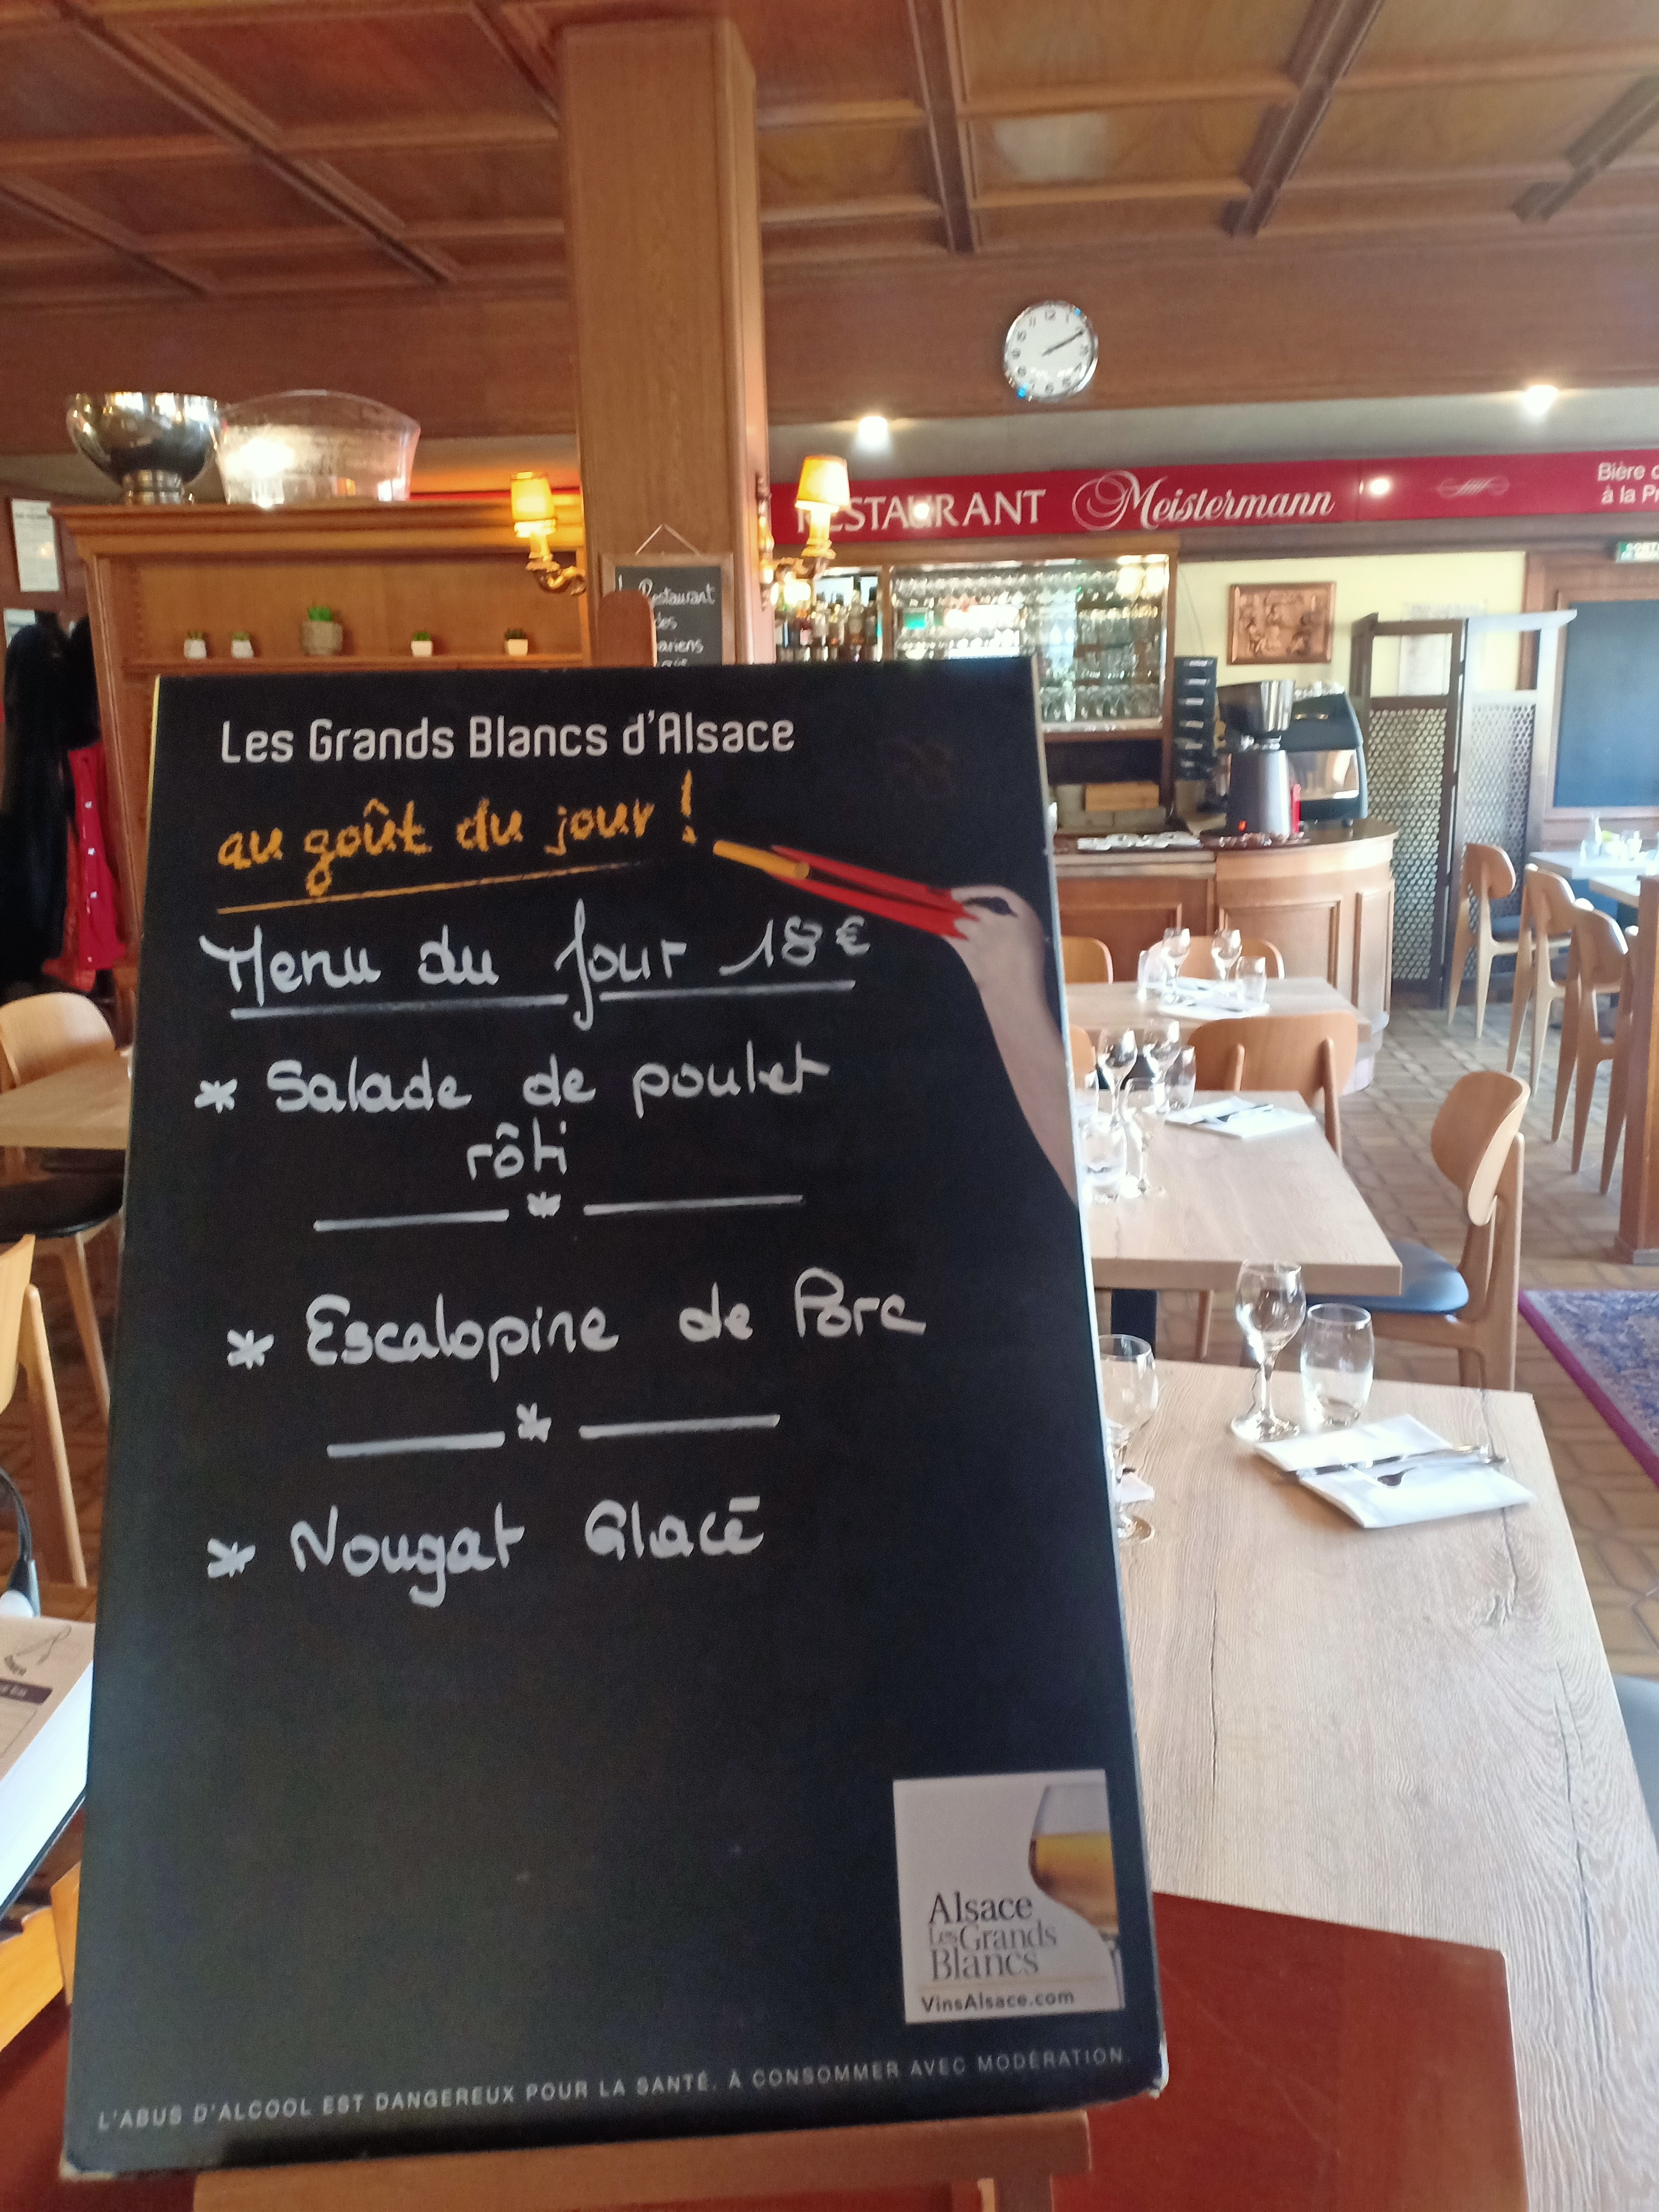 RESTAURANT Meistermann
Bière
à la
Restaurant
Les Grands Blancs d'Alsace
au goût du jour !
Menu du Jour 18€
* Salade de poulet
rôti
* Escalopine de Porc
* Nougat Glacé
Alsace
Les Grands
Blancs
VinsAlsace.com
L'ABUS D'ALCOOL EST DANGEREUX POUR LA SANTÉ. À CONSOMMER AVEC MODÉRATION.
12